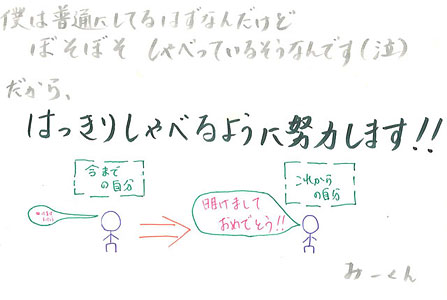 僕は普通にしてるはずなんだけど
ぼそぼそ しゃべっているそうなんです(泣)
だから、
はっきりしゃべるように努力します!!
今まで
の自分
これから
の自分
明けまして
おめでとう!!
みーくん